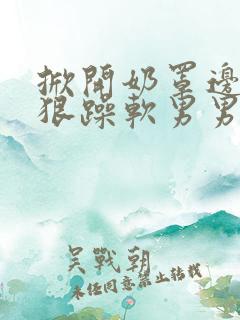 掀開奶罩邊
狠躁軟男男
吳戰朝
未任同意禁止转载